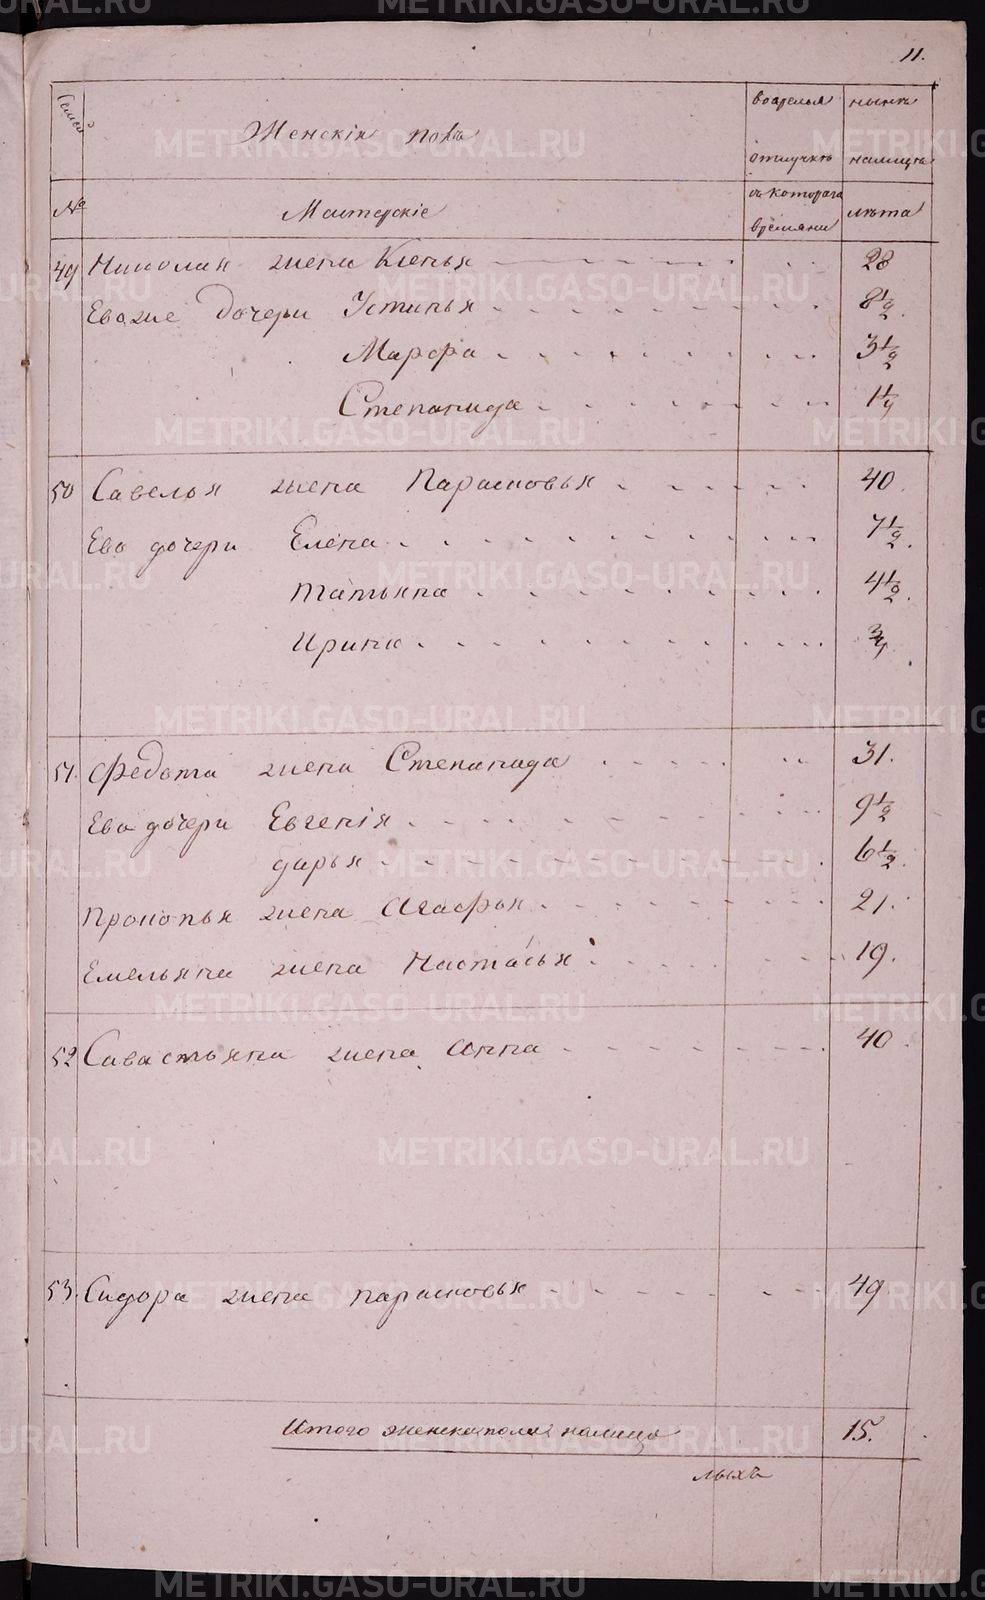 11.
Семьи
Женскiй полъ
во время
ныне
отлучке
налицо
№
Мастерскiе
съ котораго
времяни
лѣта
49 Николая жена Ксенья 28
Евожие дочери Устинья 8 1/2
Марфа 3 1/2
Степанида 1/4
50 Савелья жена Парасковья 40
Ево дочери Елена 7 1/2
Татьяна 4 1/2
Ирина 3/4
51. Федота жена Степанида 31.
Ево дочери Евгенiя 9 1/2
дарья 6 1/2
Прокопья жена Агафья 21.
Емельяна жена Настасья 19.
52 Савастьяна жена Анна 40
53. Сидора жена парасковья 49
Итого женска пола налицо 15.
лыхъ
METRIKI.GASO-URAL.RU